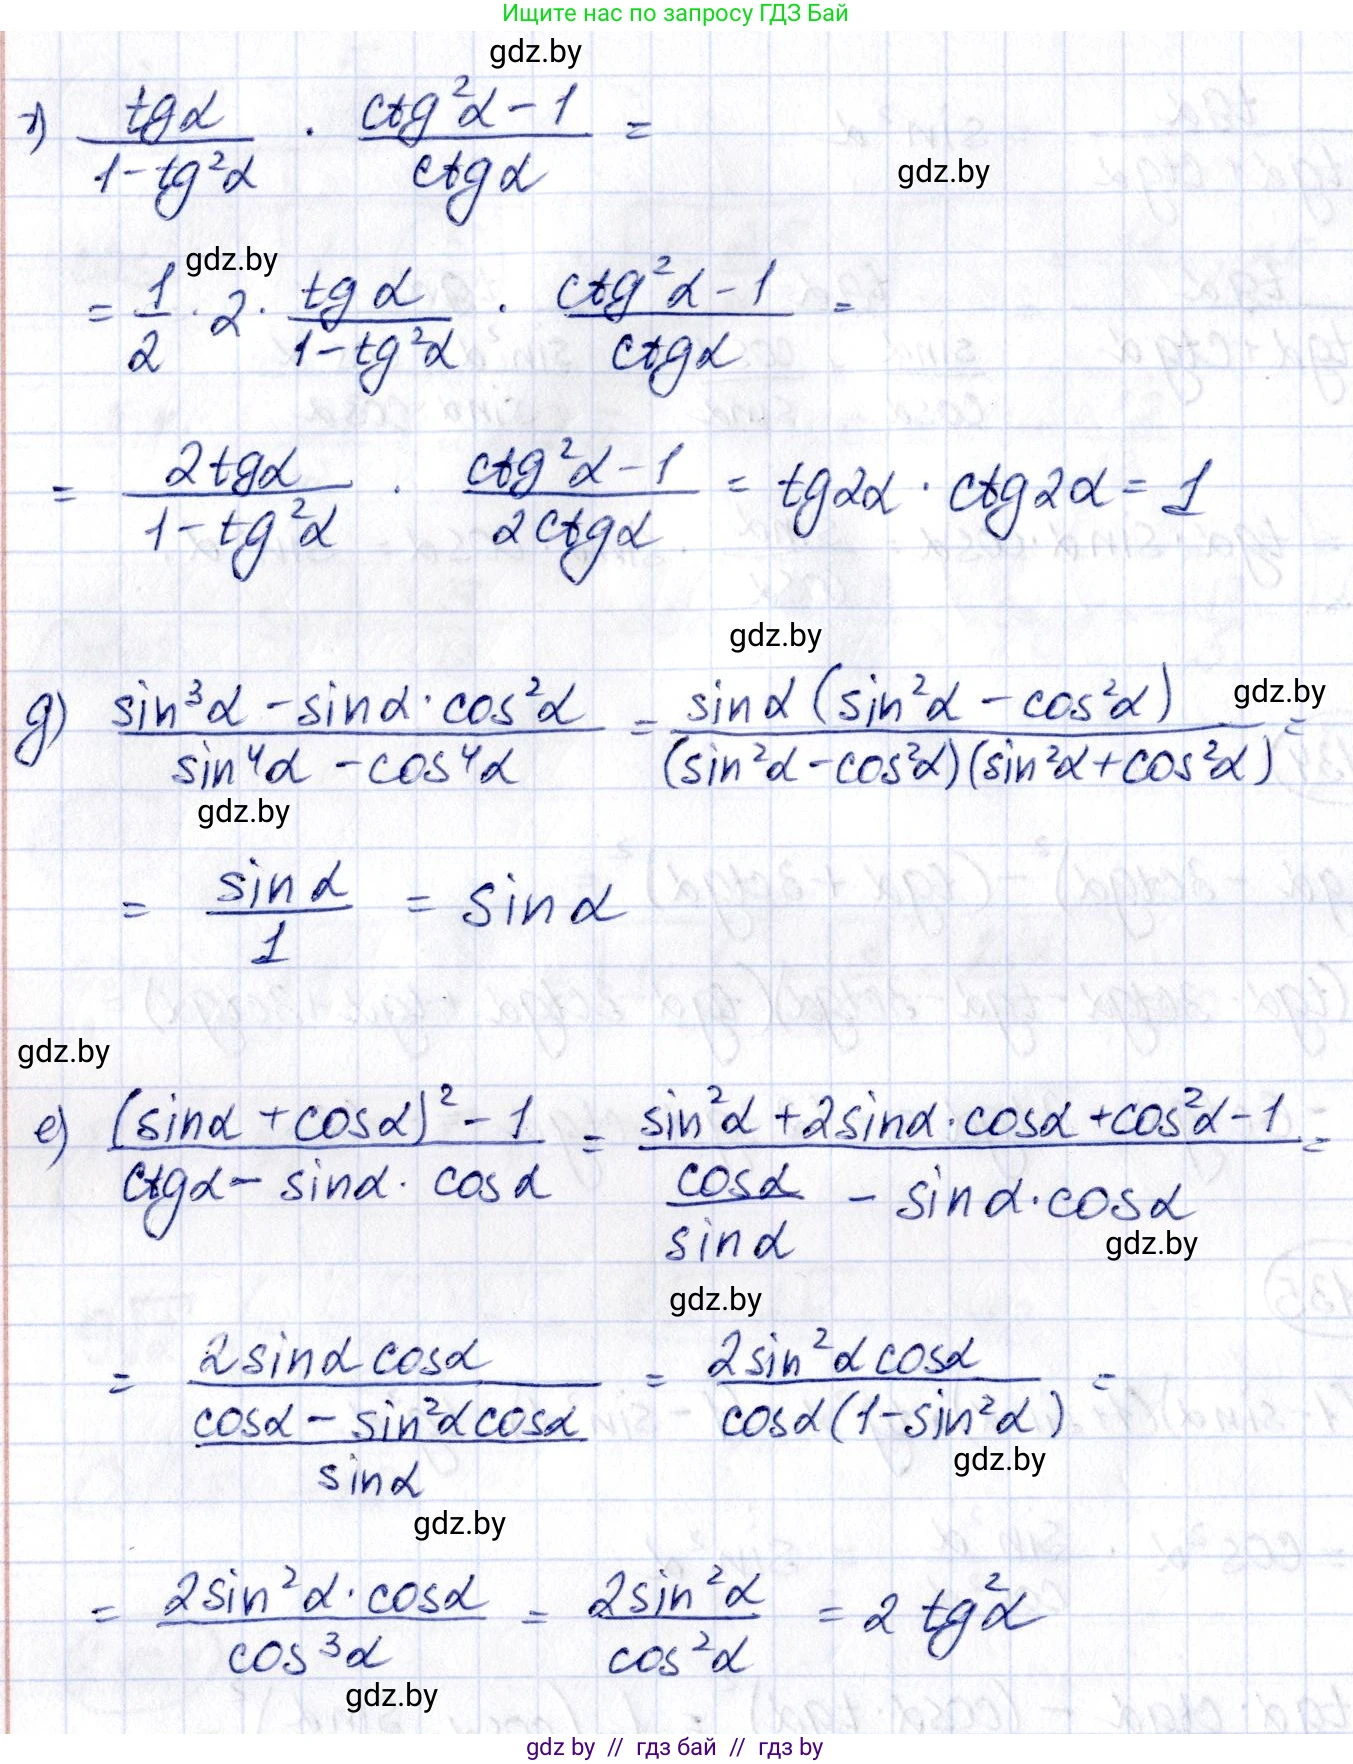 Ищите нас по запросу ГДЗ Бай
gdz.by
г) tgα/(1-tg²α) · (ctg²α-1)/ctgα =
gdz.by
gdz.by
= 1/2 · 2 · tgα/(1-tg²α) · (ctg²α-1)/ctgα =
= 2tgα/(1-tg²α) · (ctg²α-1)/2ctgα = tg2α · ctg2α = 1
gdz.by
д) (sin³α - sinα · cos²α)/(sin⁴α - cos⁴α) = sinα(sin²α - cos²α)/((sin²α - cos²α)(sin²α + cos²α)) =
gdz.by
gdz.by
= sinα/1 = sinα
gdz.by
е) ((sinα + cosα)² - 1)/(ctgα - sinα · cosα) = (sin²α + 2sinα · cosα + cos²α - 1)/(cosα/sinα - sinα · cosα) =
gdz.by
gdz.by
= 2sinα cosα/((cosα - sin²α cosα)/sinα) = 2sin²α cosα/(cosα(1-sin²α)) =
gdz.by
gdz.by
= 2sin²α · cosα/cos³α = 2sin²α/cos²α = 2tg²α
gdz.by
gdz.by // гдз бай // гдз by